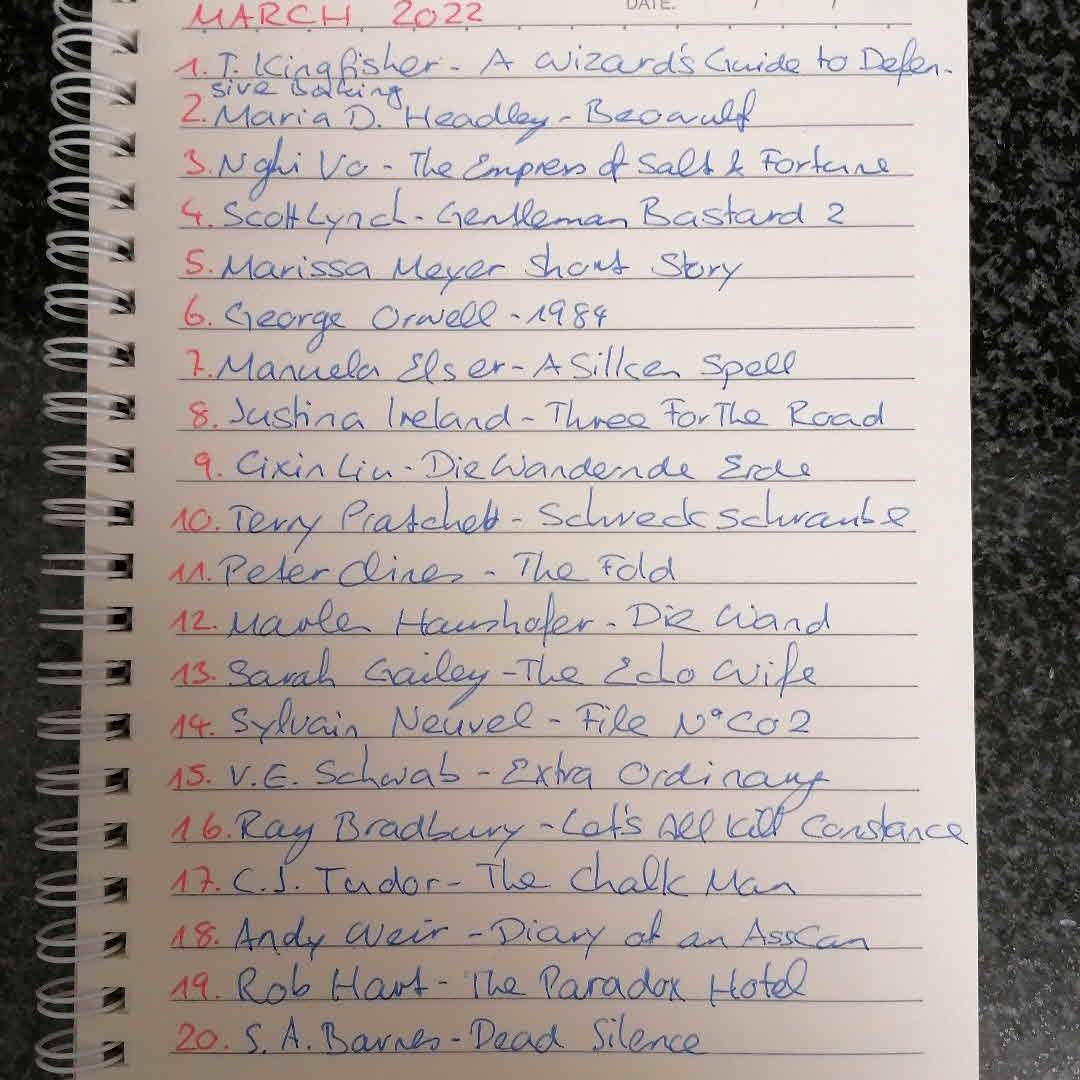 DATE: / /
MARCH 2022
1. T. Kingfisher - A Wizard's Guide to Defen-
sive Baking
2. Maria D. Headley - Beowulf
3. Nghi Vo - The Empress of Salt & Fortune
4. Scott Lynch - Gentleman Bastard 2
5. Marissa Meyer Short Story
6. George Orwell - 1984
7. Manuela Elser - A Silken Spell
8. Justina Ireland - Three For The Road
9. Cixin Liu - Die Wandernde Erde
10. Terry Pratchett - Schweckschraube
11. Peter Clines - The Fold
12. Marlen Haushofer - Die Wand
13. Sarah Gailey - The Echo Wife
14. Sylvain Neuvel - File N°CO2
15. V.E. Schwab - Extra Ordinary
16. Ray Bradbury - Let's All Kill Constance
17. C.J. Tudor - The Chalk Man
18. Andy Weir - Diary of an AssCan
19. Rob Hart - The Paradox Hotel
20. S. A. Barnes - Dead Silence